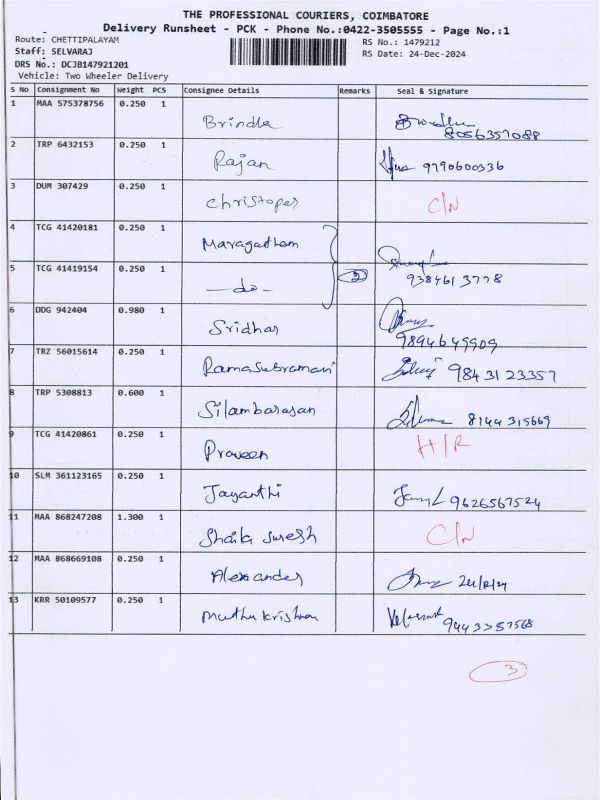 THE PROFESSIONAL COURIERS, COIMBATORE
Delivery Runsheet - PCK - Phone No.:0422-3505555 - Page No.:1
Route: CHETTIPALAYAM
Staff: SELVARAJ
DRS No.: DCJB147921201
Vehicle: Two Wheeler Delivery
RS No.: 1479212
RS Date: 24-Dec-2024
S No Consignment No Weight PCS Consignee Details Remarks Seal & Signature
1 MAA 575378756 0.250 1 Brindha 8056357088
2 TRP 6432153 0.250 1 Rajan 9790600336
3 DUM 307429 0.250 1 Christoper C/N
4 TCG 41420181 0.250 1 Maragatham
5 TCG 41419154 0.250 1 —do— 2 9384613778
6 DDG 942404 0.980 1 Sridhar 9894649909
7 TRZ 56015614 0.250 1 Ramasubramani 9843123357
8 TRP 5308813 0.600 1 Silambarasan 8144315669
9 TCG 41420861 0.250 1 Praveen H/R
10 SLM 361123165 0.250 1 Jayanthi 9626567524
11 MAA 868247208 1.300 1 Shaila Suresh C/N
12 MAA 868669108 0.250 1 Alexander 24/12/24
13 KRR 50109577 0.250 1 Muthu Krishnan 9443357568
3